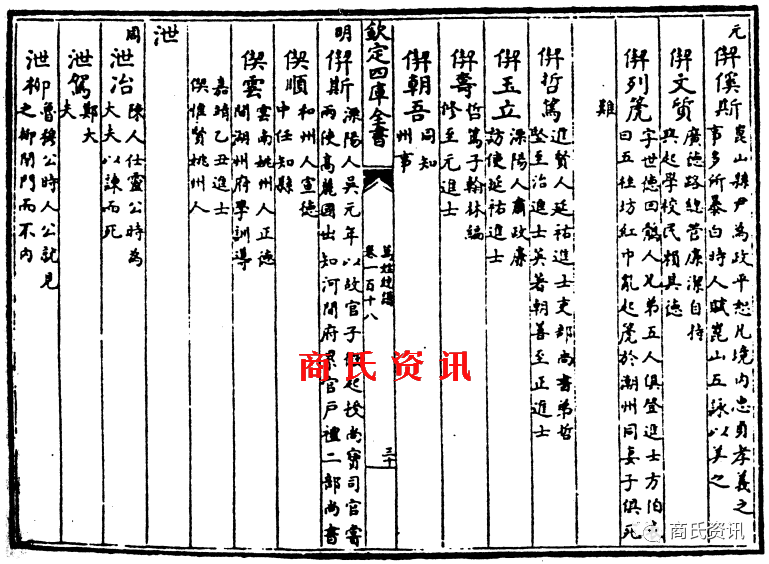 元
偰傒斯 崑山縣尹為政平恕凡境内忠貞孝義之
事多所暴白時人賦崑山五詠以美之
偰文質 廣德路總管廉潔自持
興起學校民賴其德
偰列箎 字世德回鶻人兄弟五人俱登進士方泊
曰五桂坊紅巾亂起箎於潮州同妻子俱死
難
偰哲篤 進賢人延祐進士吏部尚書弟哲
堅至治進士英著朝善至正進士
偰玉立 溧陽人肅政廉
訪使延祐進士
偰壽 哲篤子翰林編
修至元進士
偰朝吾 同知
州事
欽定四庫全書
萬姓統譜
卷一百十八
三十
明
偰斯 溧陽人吳元年以故官子起授尚寶司官嘗
兩使高麗國出知河間府累官戶禮二部尚書
偰順 和州人宣德
中任知縣
偰雲 雲南姚州人正德
間湖州府學訓導
偰惟賢姚州人
嘉靖乙丑進士
泄
周
泄冶 陳人仕靈公時為
大夫以諫而死
泄駕 鄭大
夫
泄柳 魯穆公時人公就見
之柳閉門而不内
商氏资讯
商氏资讯